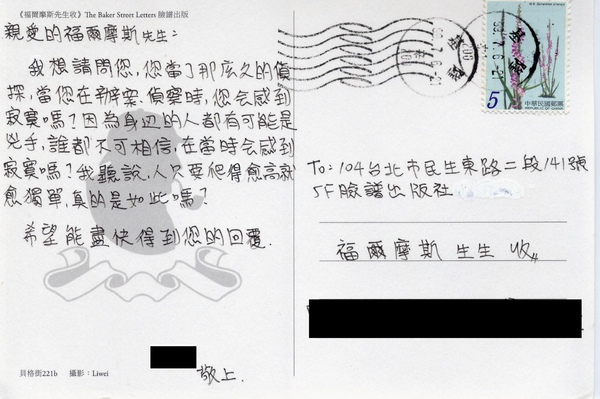 《福爾摩斯先生收》The Baker Street Letters 臉譜出版
親愛的福爾摩斯先生：
我想請問您，您當了那庅久的偵
探，當您在辦案、偵察時，您会感到
寂寞嗎？因為身边的人都有可能是
兇手，誰都不可相信，在當時会感到
寂寞嗎？我聽說，人只要爬得愈高就
愈獨單，真的是如此嗎？
希望能盡快得到您的回覆．
敬上．
貝格街221b 攝影：Liwei
5
中華民國郵票
To: 104台北市民生東路二段141號
5F臉譜出版社
福爾摩斯 生生 收